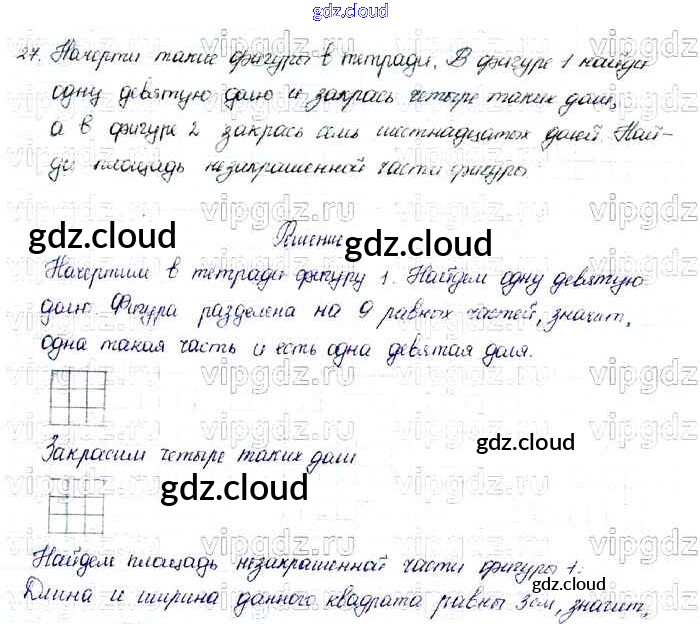 gdz.cloud
27. Начерти такие фигуры в тетради. В фигуре 1 найди
одну девятую долю и закрась четыре таких доли,
а в фигуре 2 закрась семь шестнадцатых долей. Най-
ди площадь незакрашенной части фигуры
gdz.cloud
Решение
gdz.cloud
Начертим в тетради фигуру 1. Найдем одну девятую
долю. Фигура разделена на 9 равных частей, значит,
одна такая часть и есть одна девятая доля.
vipgdz.ru
Закрасим четыре таких доли
gdz.cloud
gdz.cloud
Найдем площадь незакрашенной части фигуры 1.
gdz.cloud
Длина и ширина данного квадрата равны 3см, значит,